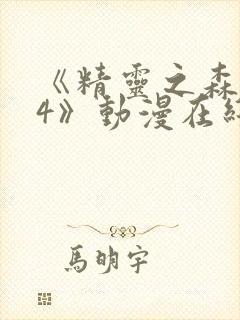 《精靈之森
4》動漫在
馬明宇